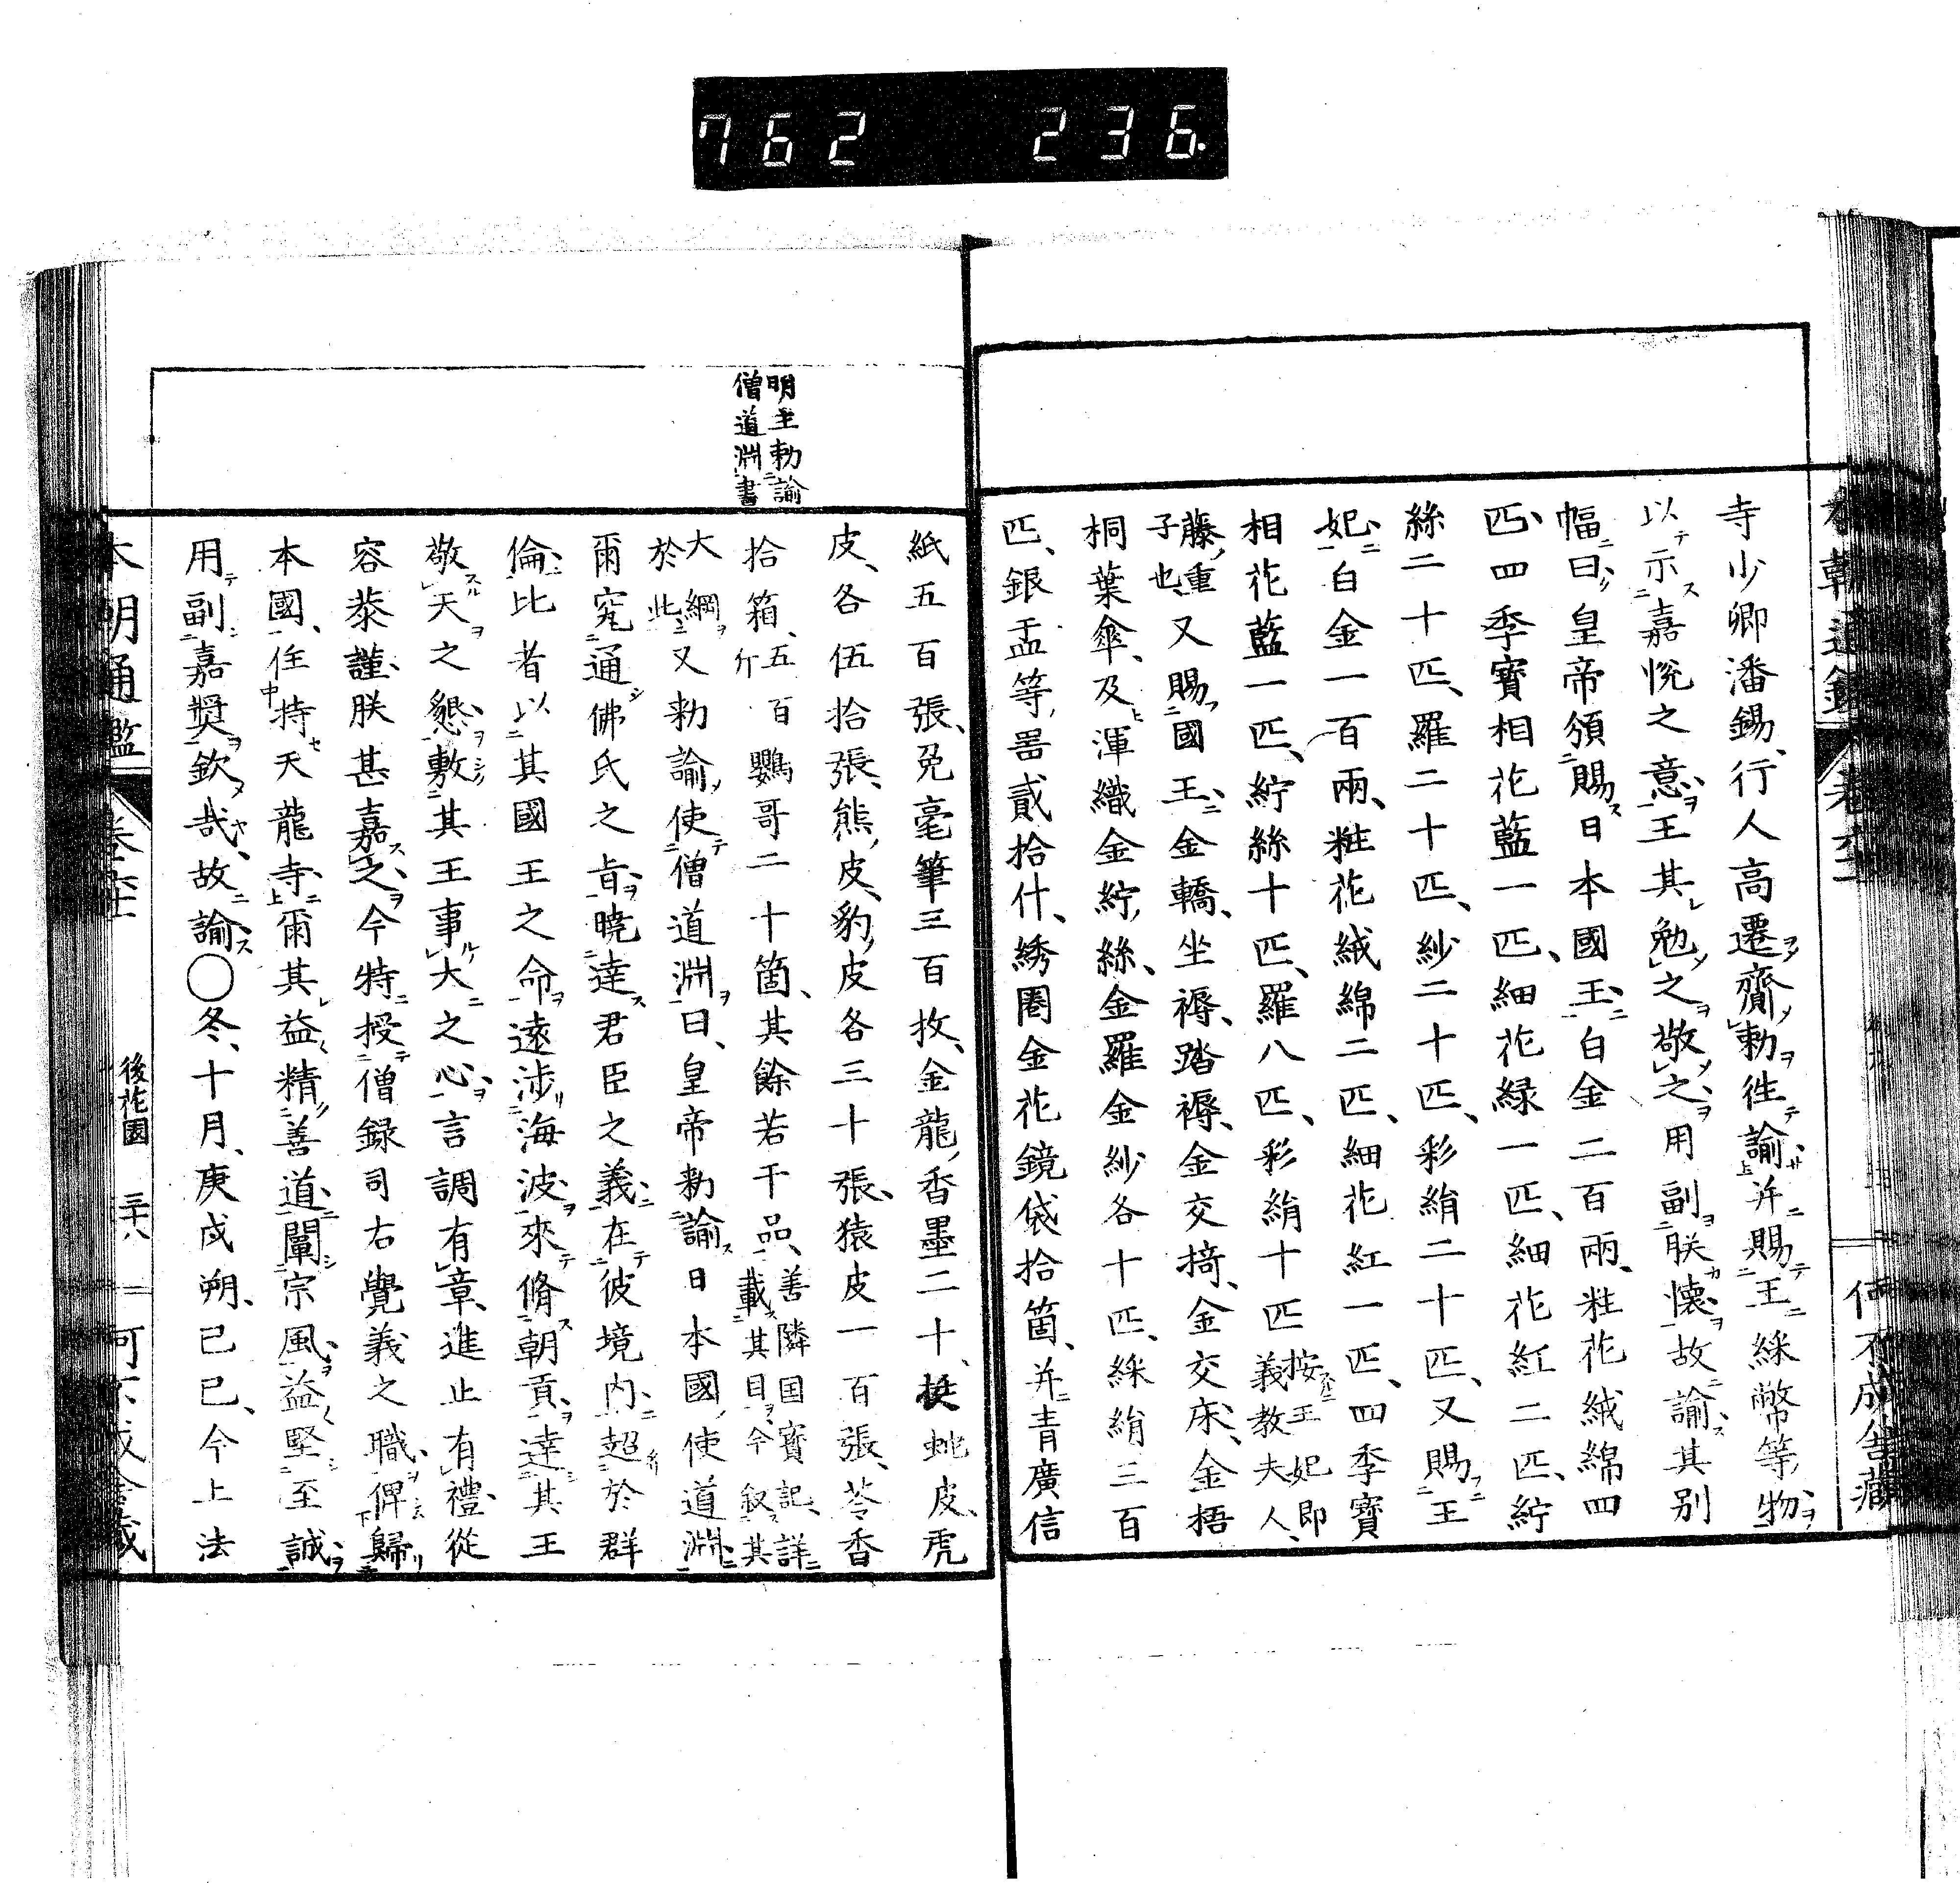 762 236.
寺少卿潘錫、行人高遷、齎勅往諭、并賜王綵幣等物、
以示嘉悦之意、王其勉之敬之、用副朕懐、故諭、其別
幅曰、皇帝頒賜日本國王、白金二百兩、粧花絨綿四
匹、四季寶相花藍一匹、細花緑一匹、細花紅二匹、紵
絲二十匹、羅二十匹、紗二十匹、彩絹二十匹、又賜王
妃、白金一百兩、粧花絨綿二匹、細花紅一匹、四季寶
相花藍一匹、紵絲十匹、羅八匹、彩絹十匹
按王妃即
義教夫人、
藤重
子也、
又賜國王、金轎、坐褥、踏褥、金交掎、金交床、金梧
桐葉傘、及渾織金紵絲、金羅金紗各十匹、綵絹三百
匹、銀盂等噐貳拾什、綉圏金花鏡袋拾箇、并青廣信
紙五百張、兎毫筆三百枚、金龍香墨二十挺、虵皮、虎
皮、各伍拾張、熊皮、豹皮各三十張、猿皮一百張、苓香
拾箱、五百
斤
鸚哥二十箇、其餘若干品、
善隣国寶記、詳
載其目、今叙其
大綱
於此
又勅諭使僧道淵曰、皇帝勅諭日本國使道淵、
爾究通佛氏之㫖、曉達君臣之義、在彼境内、超於群
倫、比者以其國王之命、遠渉海波、來脩朝貢、達其王
敬天之懇、敷其王事大之心、言調有章、進止有禮、從
容恭謹、朕甚嘉之、今特授僧録司右覺義之職、俾歸
本國、住持天龍寺、爾其益精善道、闡宗風、益堅至誠、
用副嘉奬、欽哉、故諭、○冬、十月、庚戌朔、己巳、今上法
明主勅諭
僧道淵書
本朝通鑑
後花園
三十八